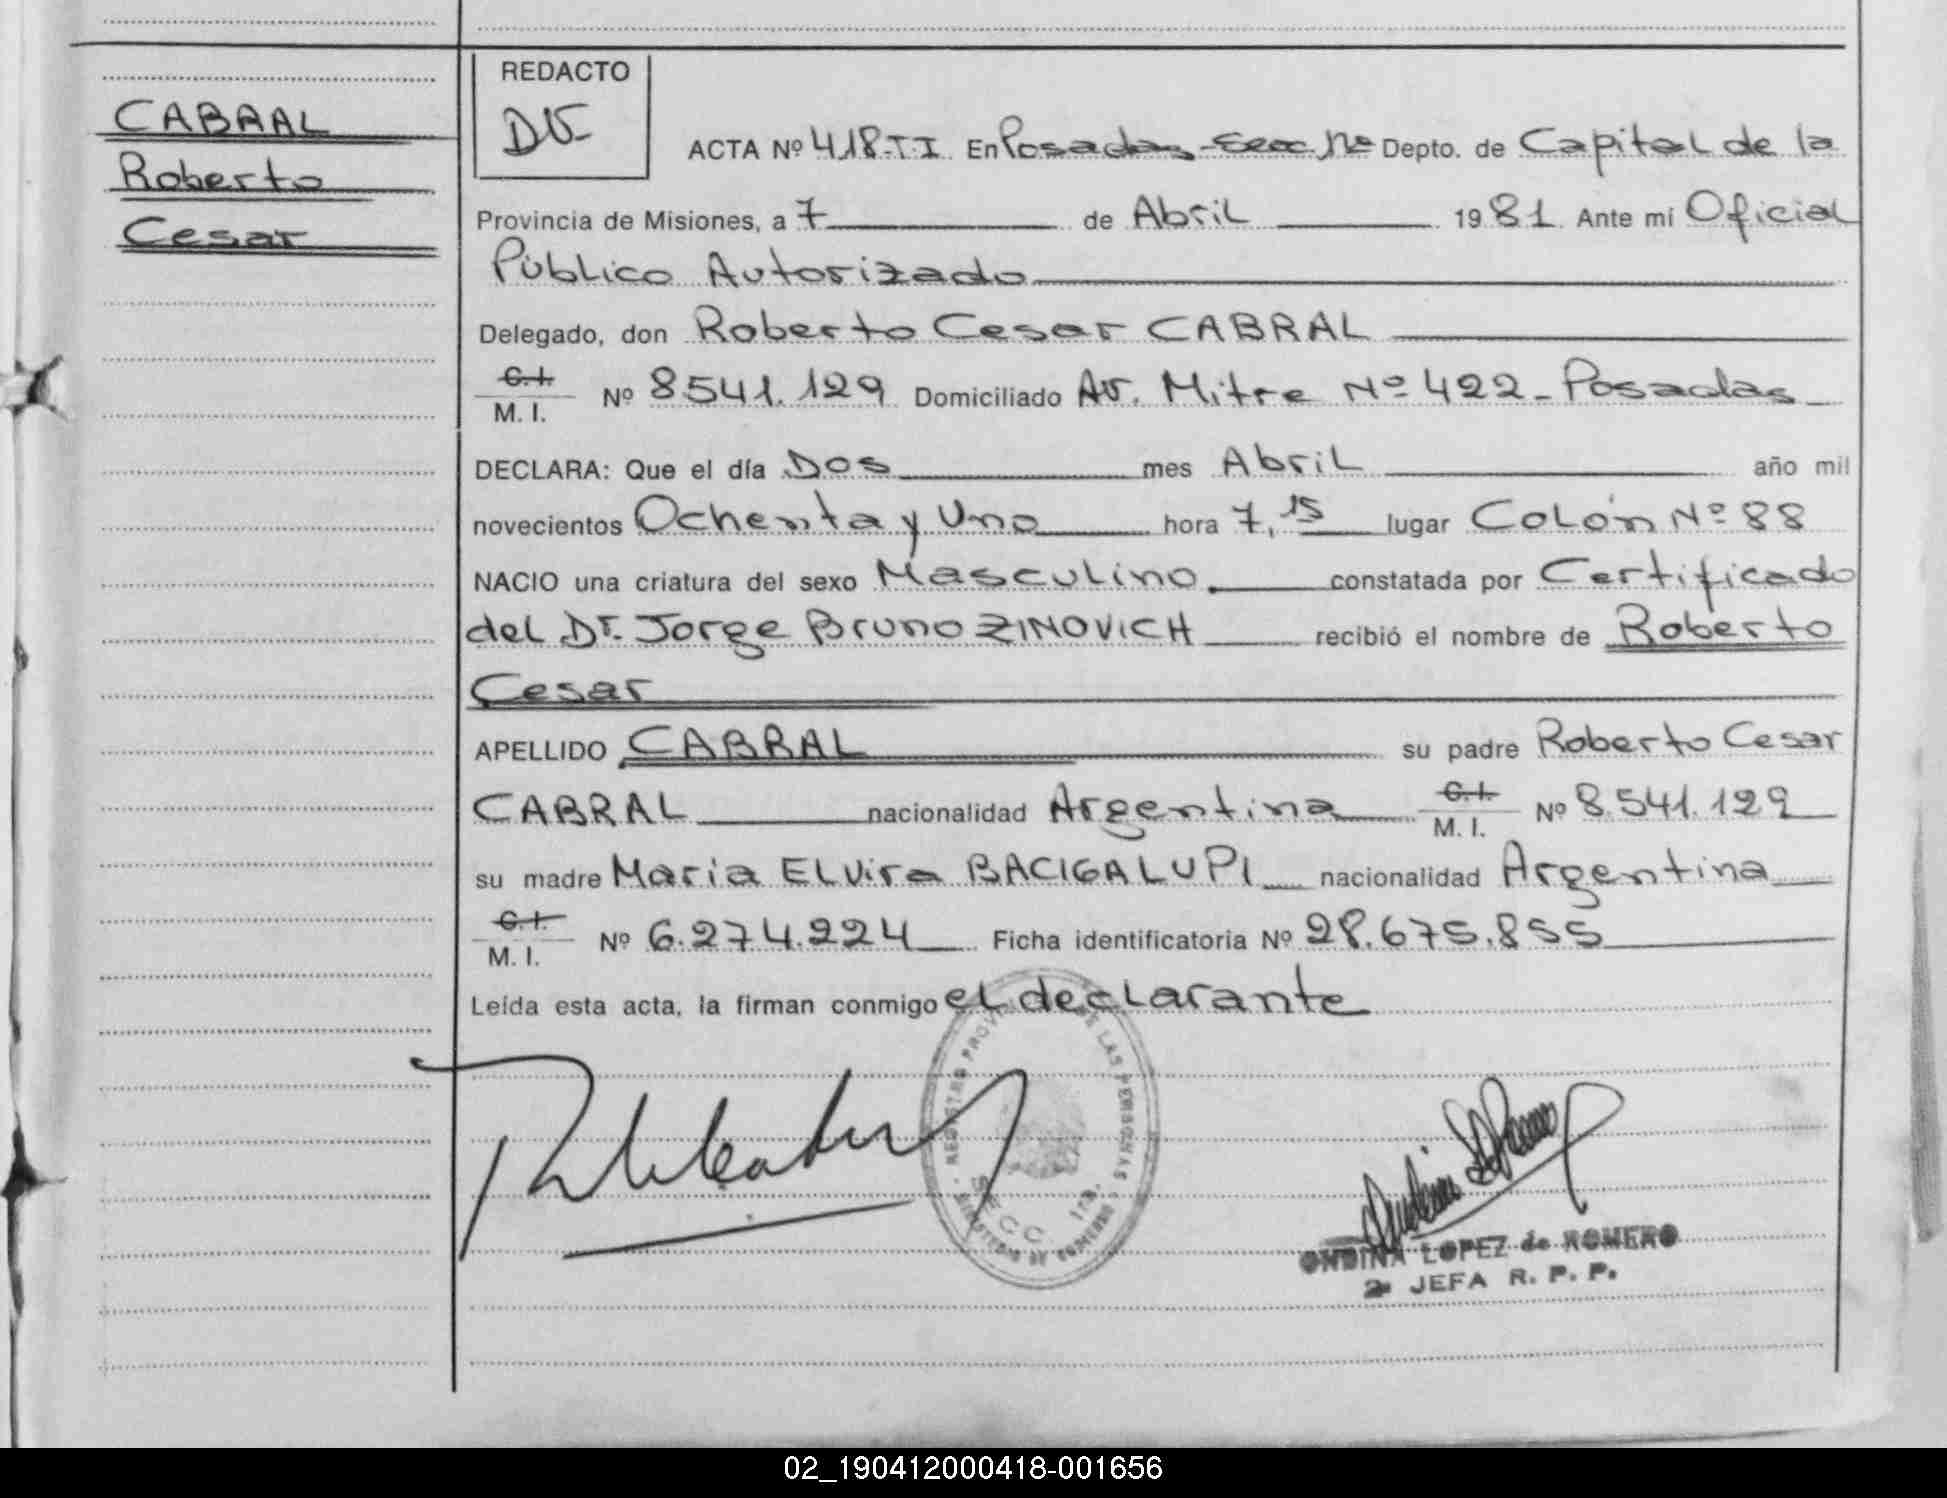 CABRAL
Roberto
Cesar
REDACTO
DV-
ACTA Nº 418-T-I En Posadas-Secc. 1ra Depto. de Capital de la
Provincia de Misiones, a 7 de Abril 1981 Ante mi Oficial
Público Autorizado
Delegado, don Roberto Cesar CABRAL
C.I. M. I. Nº 8541.129 Domiciliado Av. Mitre Nº 422-Posadas
DECLARA: Que el día Dos mes Abril año mil
novecientos Ochenta y Uno hora 7,15 lugar Colón Nº 88
NACIO una criatura del sexo Masculino constatada por Certificado
del Dr. Jorge Bruno ZINOVICH recibió el nombre de Roberto
Cesar
APELLIDO CABRAL su padre Roberto Cesar
CABRAL nacionalidad Argentina C.I. M. I. Nº 8.541.129
su madre Maria Elvira BACIGALUPI nacionalidad Argentina
C.I. M. I. Nº 6.274.224 Ficha identificatoria Nº 28.675.855
Leída esta acta, la firman conmigo el declarante
REGISTRO PROV DE LAS PERSONAS
SECC. 1ra.
MINISTERIO DE GOBIERNO
ONDINA LOPEZ de ROMERO
2ª JEFA R. P. P.
02_190412000418-001656